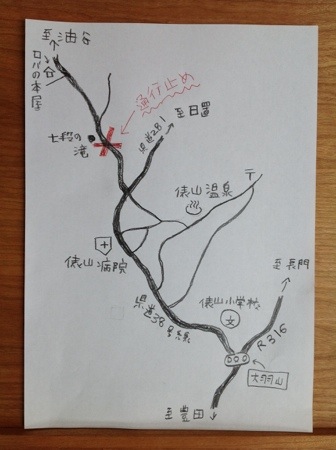 至油谷
ロバの本屋
通行止め
至日置
県道281
七段の
滝
俵山温泉
俵山病院
県道38号線
俵山小学校
文
至長門
R316
大羽山
至豊田